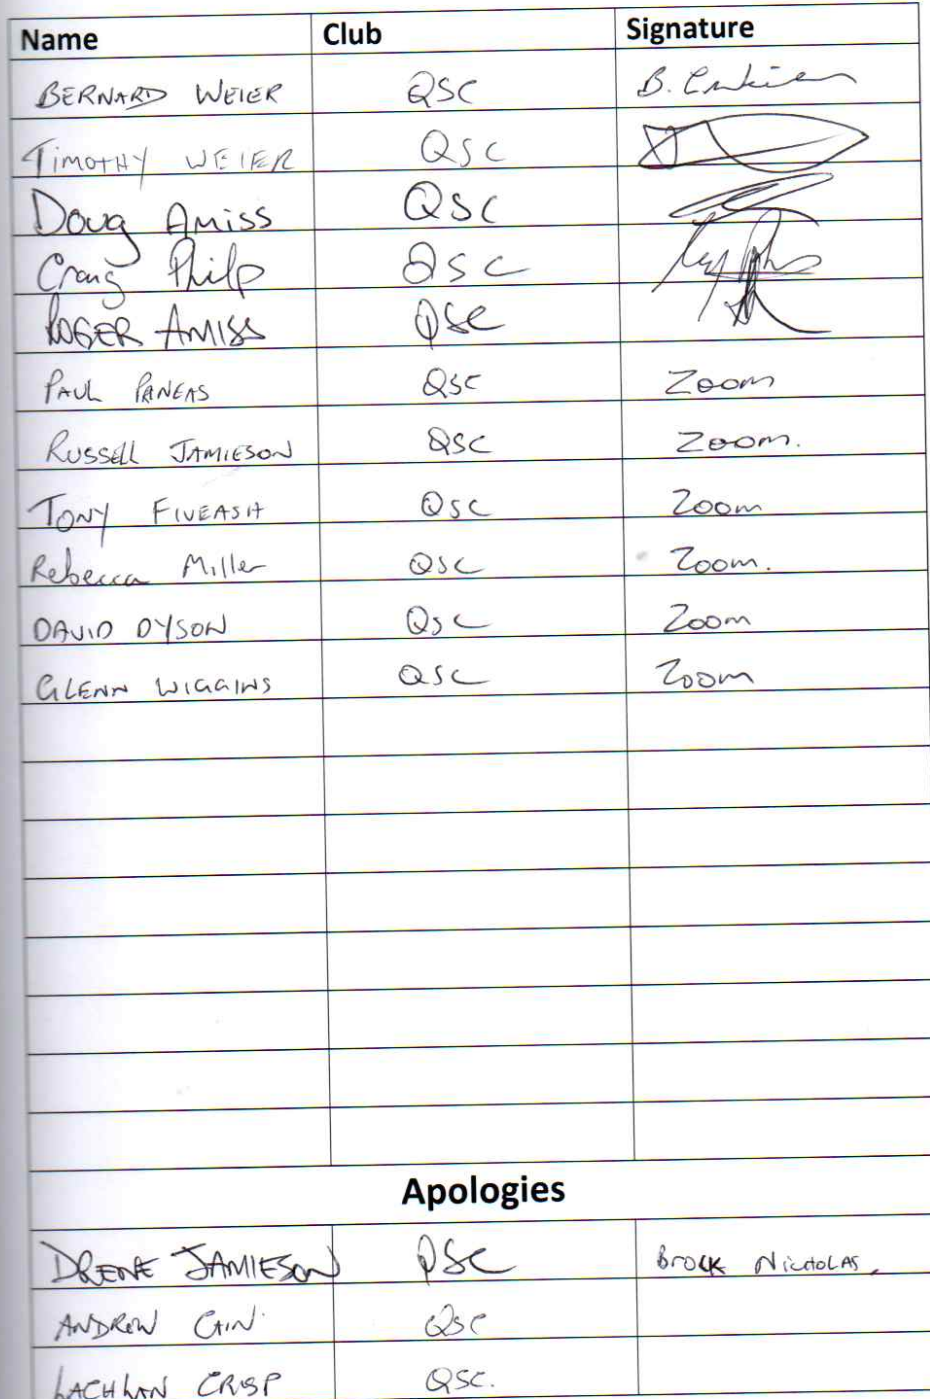 Name Club Signature
BERNARD WEIER QSC B.
TIMOTHY WEIER QSC
Doug Amiss QSC
Craig Philp QSC
ROGER AMISS QSC
PAUL PANEAS QSC Zoom
RUSSELL JAMIESON QSC Zoom.
TONY FIVEASH QSC Zoom
Rebecca Miller QSC Zoom.
DAVID DYSON QSC Zoom
GLENN WIGGINS QSC Zoom
Apologies
JAMIESON QSC Brock Nicholas.
ANDREW CAIN QSC
LACHLAN CRISP QSC.